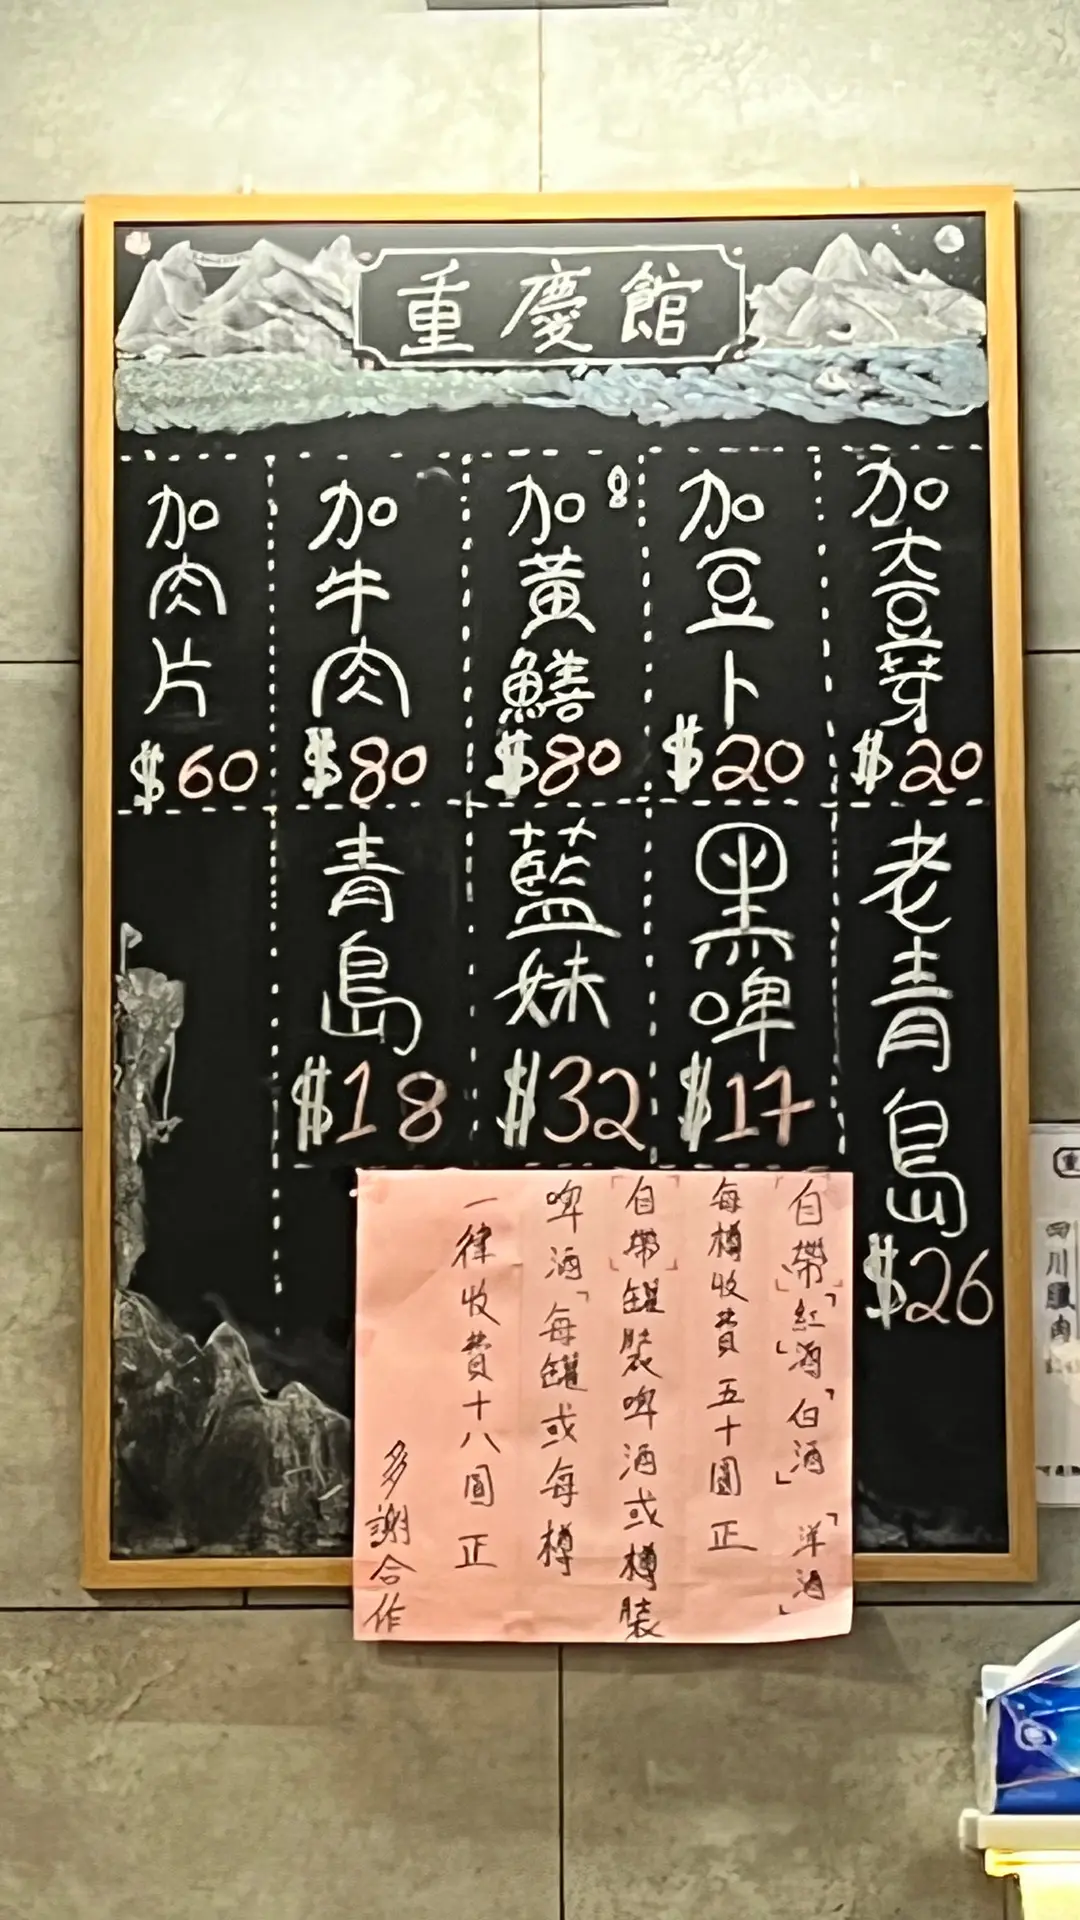 重慶館
加大豆芽
$20
加豆卜
$20
加黃鱔
$80
加牛肉
$80
加肉片
$60
老青島
$26
黑啤
$17
藍妹
$32
青島
$18
自帶「紅酒」「白酒」「洋酒」
每樽收費五十圓正
「自帶」罐裝啤酒或樽裝
啤酒「每罐或每樽
一律收費十八圓正
多謝合作
四川臘肉